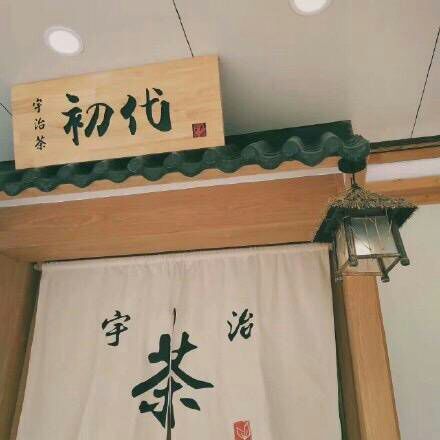 宇治茶
初代
宇治
茶